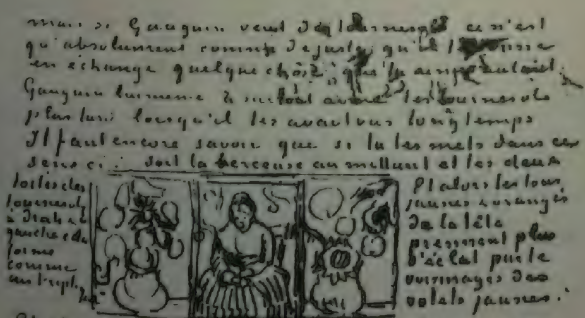 mais si Gauguin veut des tournesols ce n'est
qu'absolument comme de juste qu'il te donne
en échange quelque chose que tu aimes autant.
Gauguin lui même a surtout aimé les tournesols
plus tard lorsqu'il les avait vus longtemps
Il faut encore savoir que si tu les mets dans ce
sens ci: soit la berceuse au milieu et les deux
toiles des
tournesols
à droite et
gauche cela
forme
comme
un triptyque
Et alors les tons
jaunes & orangés
de la tête
prennent plus
d'éclat par le
voisinages des
volets jaunes.